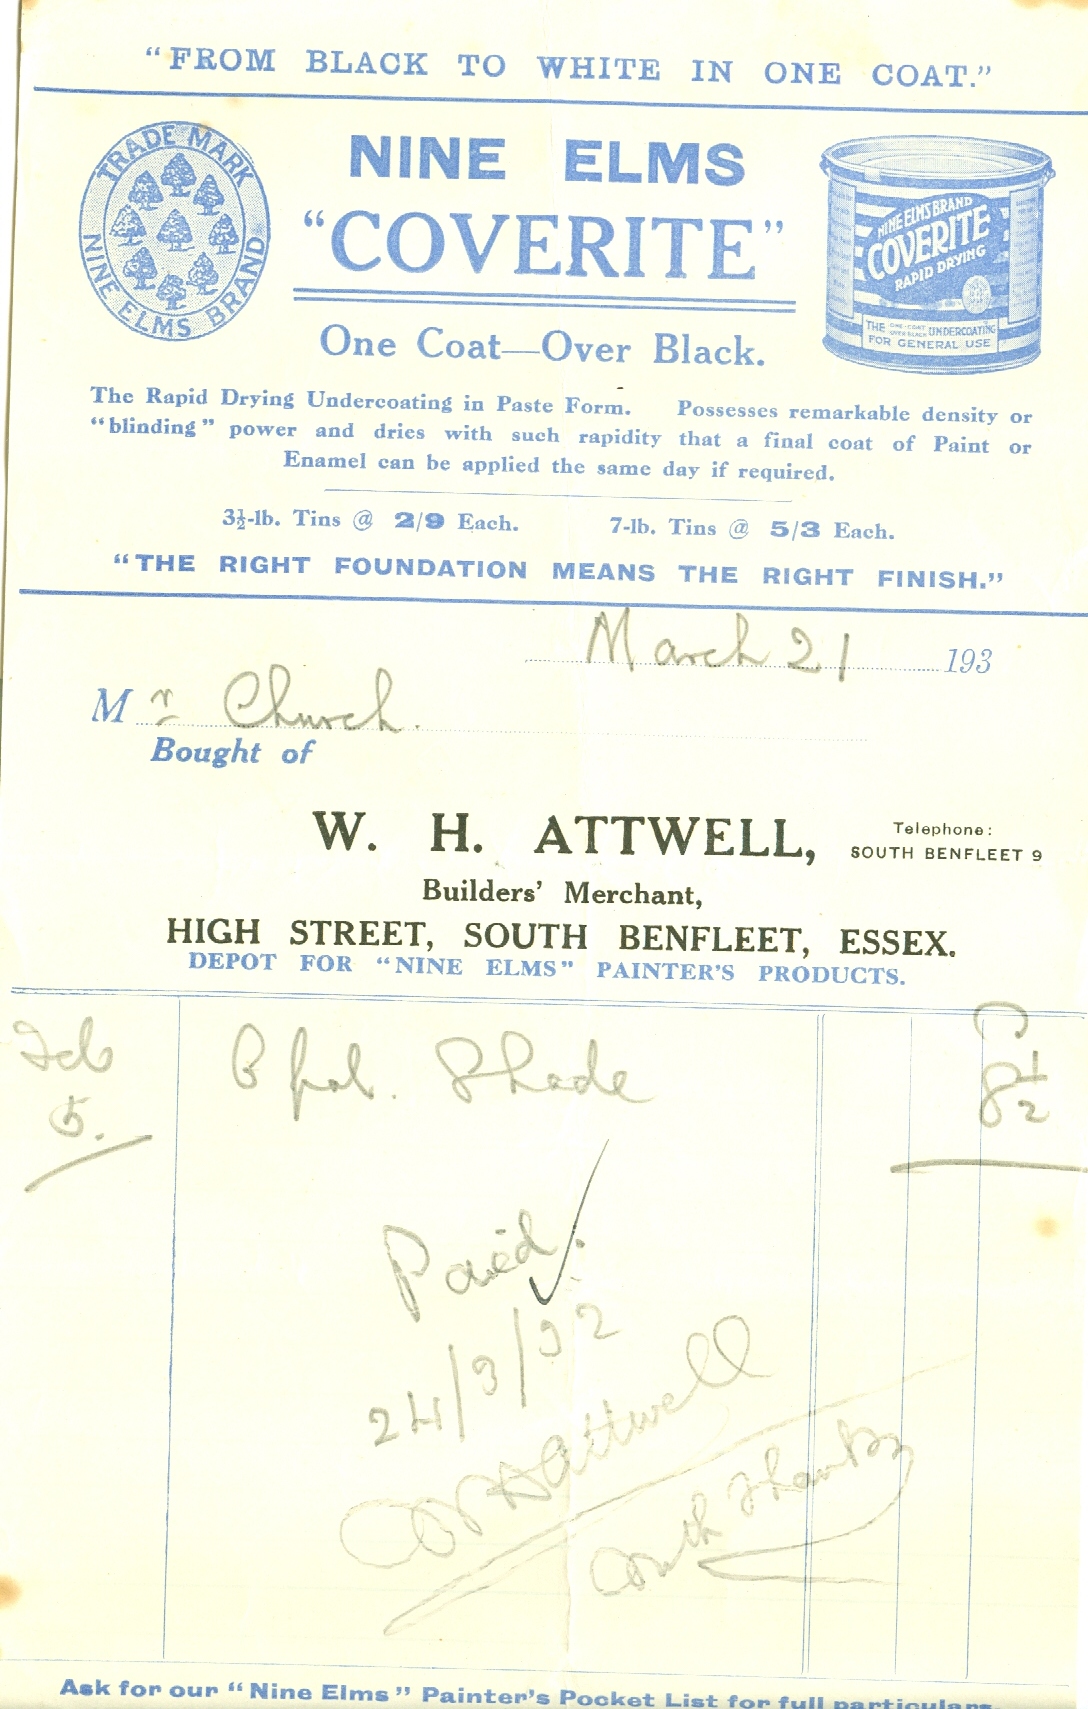 “FROM BLACK TO WHITE IN ONE COAT.”
TRADE MARK
NINE ELMS BRAND
NINE ELMS
“COVERITE”
One Coat—Over Black.
NINE ELMS BRAND
COVERITE
RAPID DRYING
THE ONE-COAT OVER BLACK UNDERCOATING
FOR GENERAL USE
The Rapid Drying Undercoating in Paste Form. Possesses remarkable density or
“blinding” power and dries with such rapidity that a final coat of Paint or
Enamel can be applied the same day if required.
3½-lb. Tins @ 2/9 Each. 7-lb. Tins @ 5/3 Each.
“THE RIGHT FOUNDATION MEANS THE RIGHT FINISH.”
March 21 193
Mr Church.
Bought of
W. H. ATTWELL,
Telephone:
SOUTH BENFLEET 9
Builders’ Merchant,
HIGH STREET, SOUTH BENFLEET, ESSEX.
DEPOT FOR “NINE ELMS” PAINTER’S PRODUCTS.
Feb Shade 8½
5.
Paid.
24/3/32
WHAttwell
with thanks
Ask for our “Nine Elms” Painter’s Pocket List for full particulars.